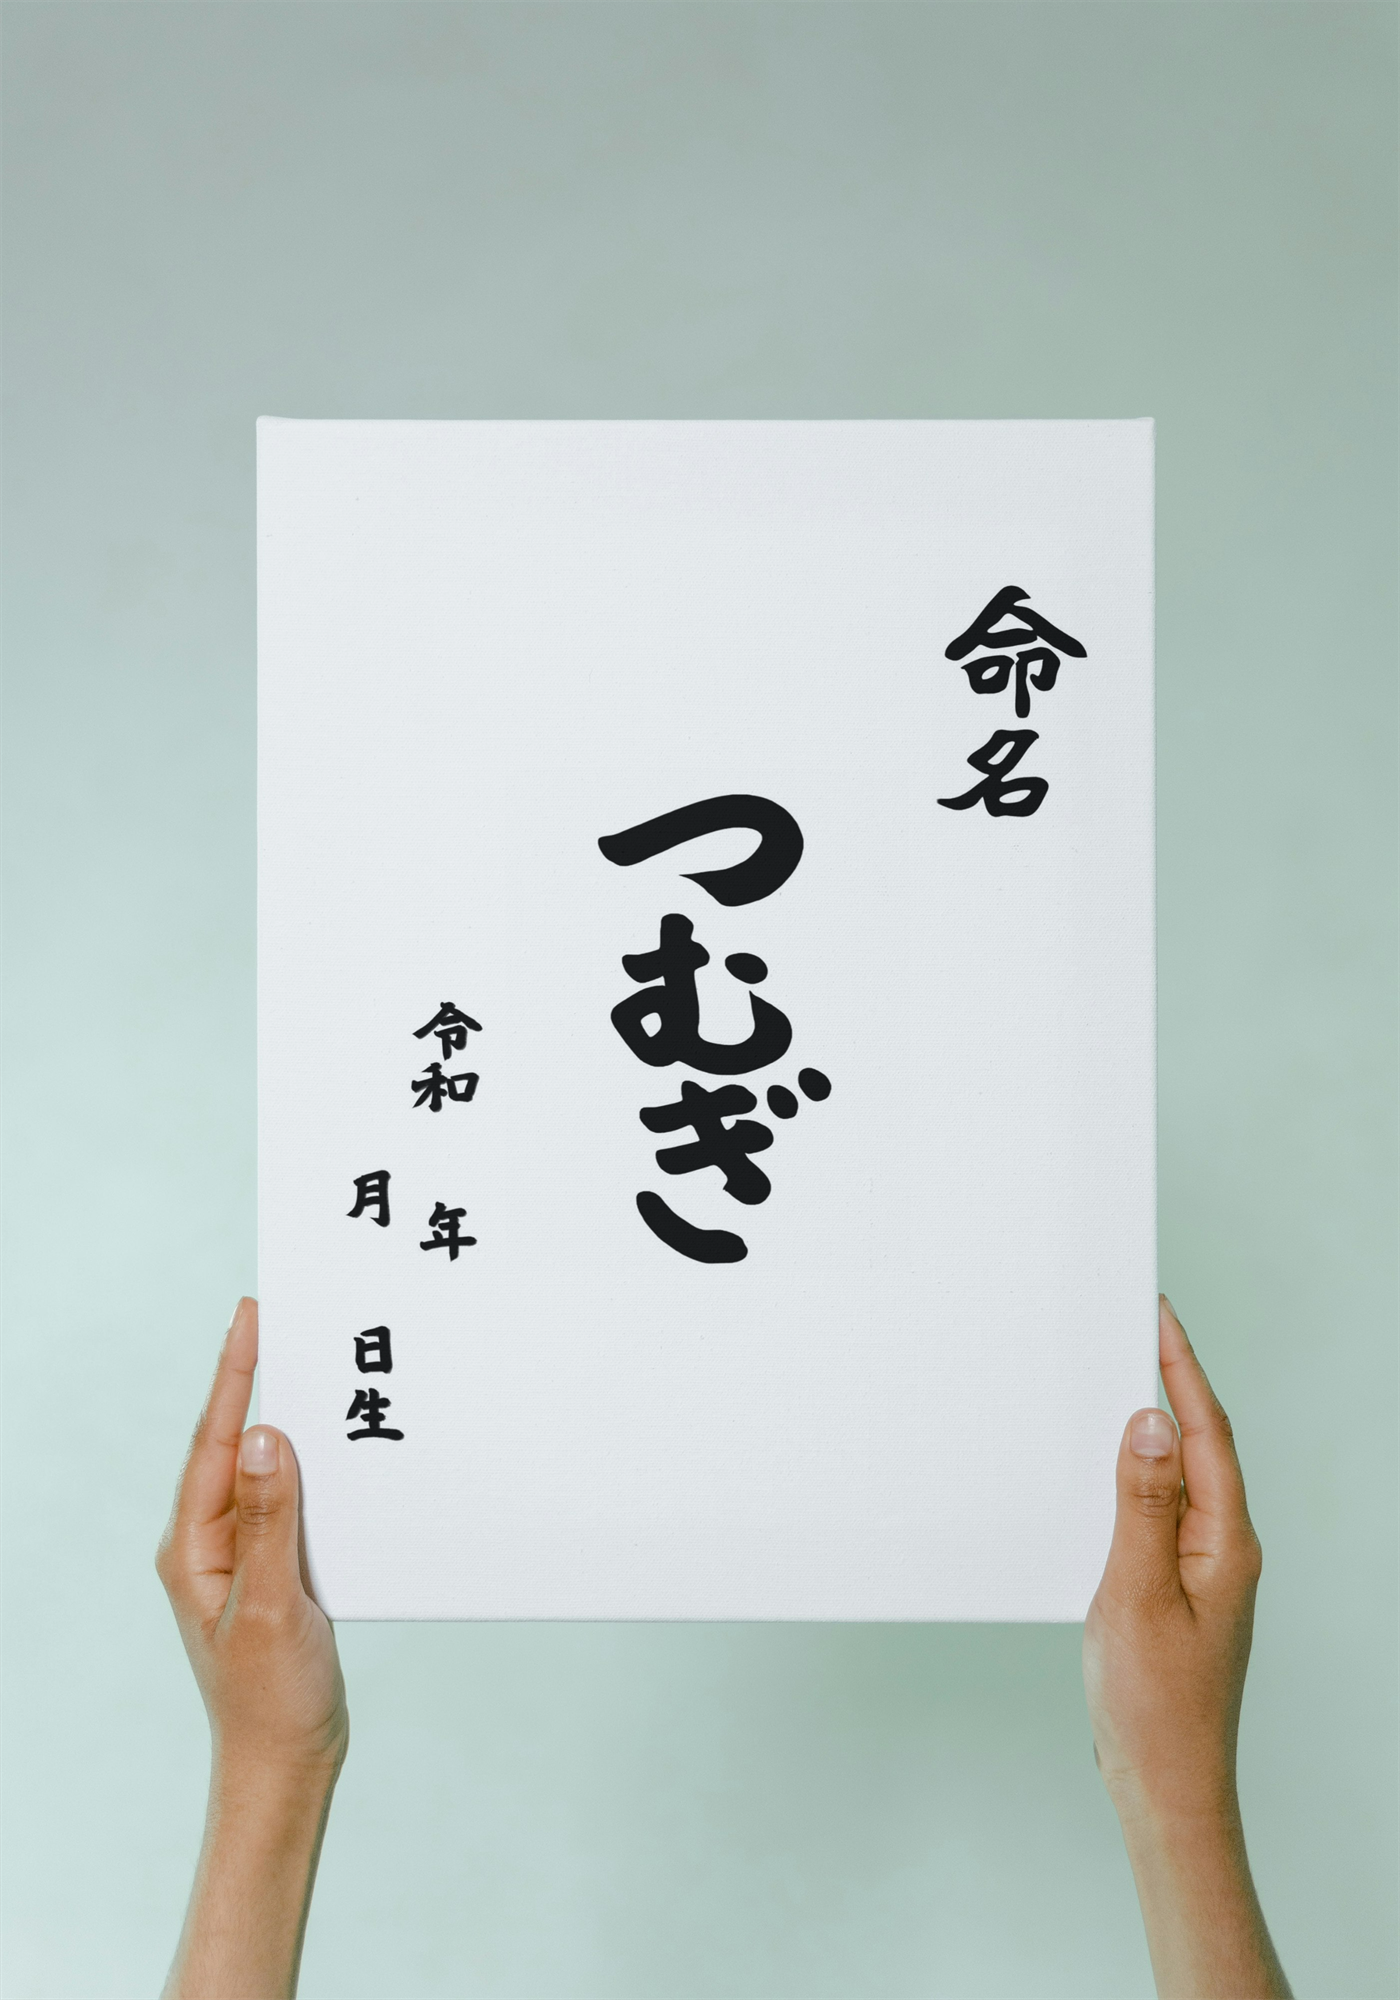 命名
つむぎ
令和 年
月 日生